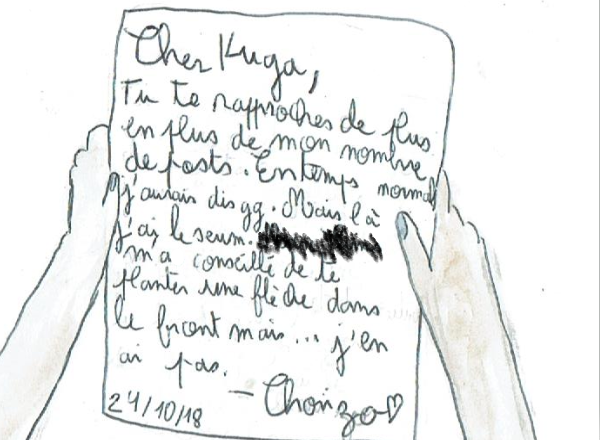 Cher Kuga,
Tu te rapproches de plus
en plus de mon nombre
de posts. En temps normal
j'aurais dis gg. Mais là
j'ai le seum.
m'a conseillé de te
planter une flèche dans
le front mais... j'en
ai pas.
24/10/18 — Chonzo♡